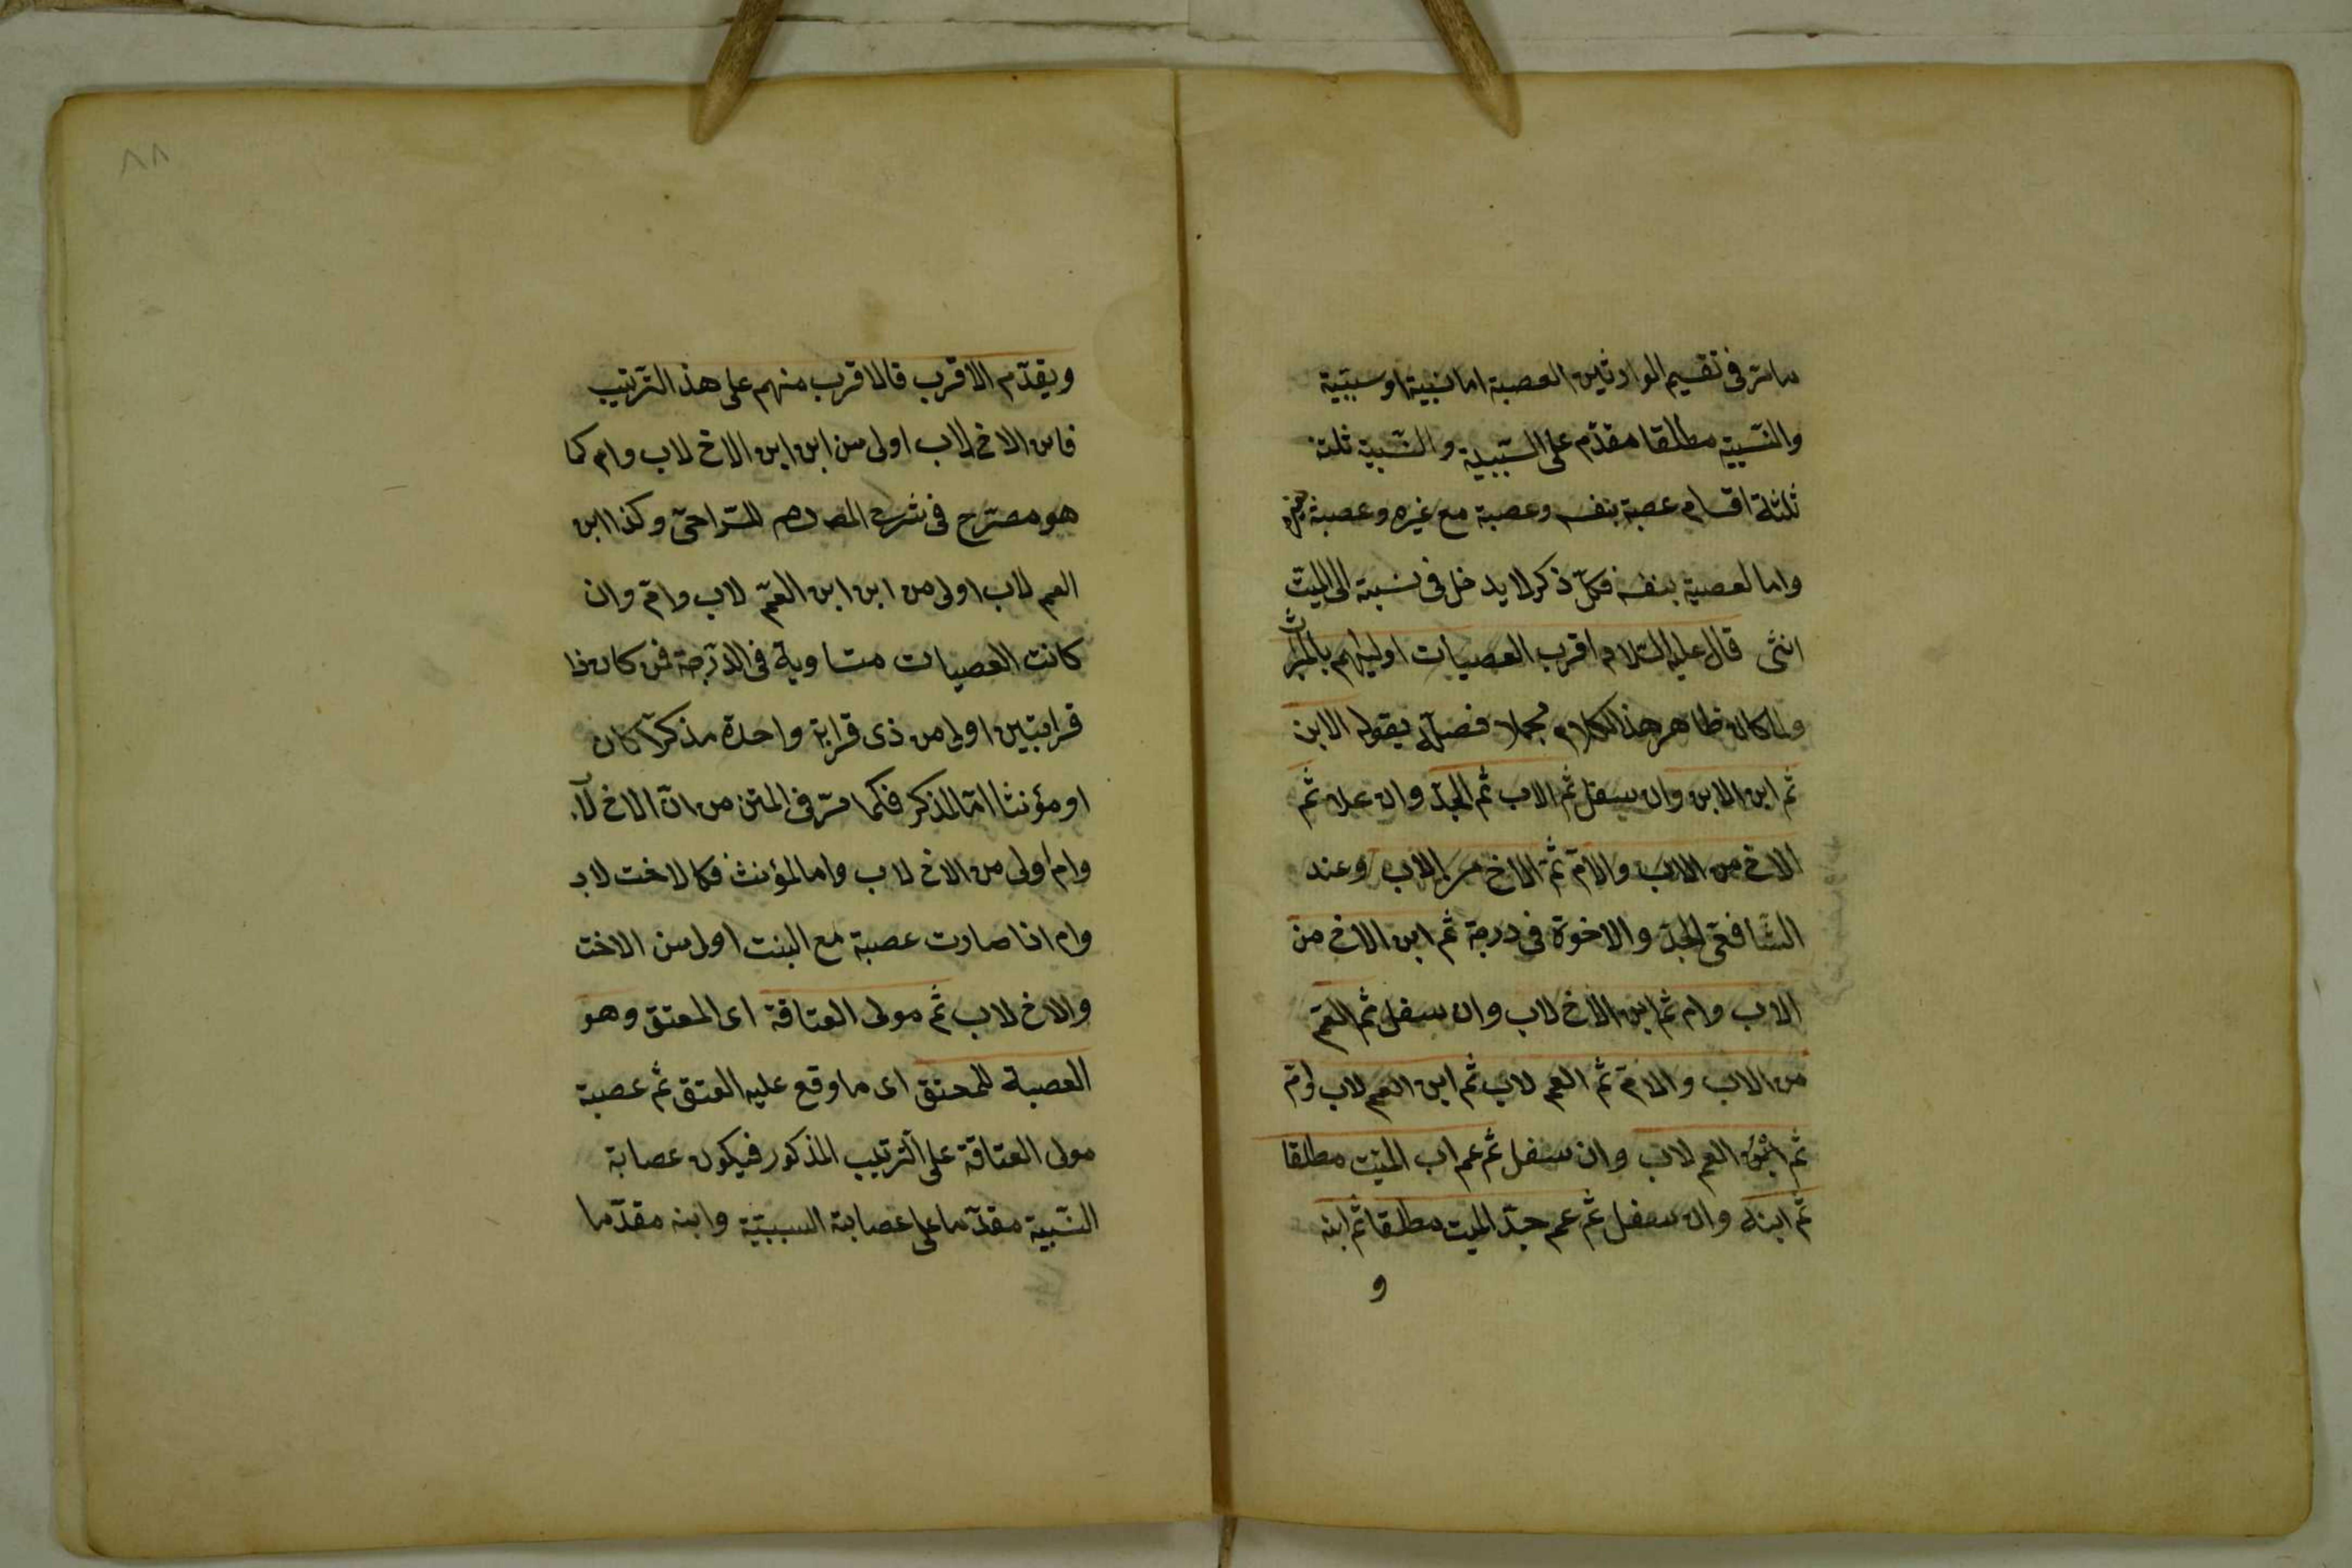 مامر فى تقسيم الوارثين العصبة اما نسبية او سببية
والنسبية مطلقا مقدّم على السّببية والنسبية ثلثة
ثلثة اقسام عصبة بنفسه وعصبة مع غيره وعصبة بغيره
واما لعصبة بنفسه فكلّ ذكر لا يدخل فى نسبته الى الميّت
انثى قال عليه السّلام اقرب العصبات اوليهم بالميراث
ولما كان ظاهر هذا الكلام مجملا فصلّه بقوله الابن
ثم ابن الابن وان سفل ثم الاب ثم الجدّ وان علا ثم
الاخ من الاب والامّ ثمّ الاخ من الاب وعند
الشّافعىّ الجدّ والاخوة فى درجة ثم ابن الاخ من
الاب وام ثم ابن الاخ لاب وان سفل ثم العمّ
من الاب والامّ ثم العم لاب ثم ابن العم لاب وامّ
ثم ابن العم لاب وان سفل ثم عم اب الميّت مطلقا
ثم ابنه وان سفل ثم عم جدّ الميت مطلقا ثم ابنه
و
٨٨
ويقدّم الاقرب فالاقرب منهم على هذ الترتيب
فابن الاخ لاب اولى من ابن ابن الاخ لاب وام كما
هو مصرّح فى شرح السّراجىّ وكذا ابن
العم لاب اولى من ابن ابن العمّ لاب وامّ وان
كانت العصبات متساوية فى الدّرجة فمن كان ذا
قرابتين اولى من ذى قرابة واحدة مذكرّا كان
او مؤنثا امّا المذكر فكما مرّ فى المتن من انّ الاخ لاب
وام اولى من الاخ لاب واما المؤنث فكالاخت لاب
وام اذا صارت عصبة مع البنت اولى من الاخت
والاخ لاب ثم مولى العتاقة اى المعتق وهو
العصبة للمعتق اى ما وقع عليه العتق ثم عصبة
مولى العتاقة على الترتيب المذكور فيكون عصابة
النّسبية مقدّما على عصابة السببيّة وابنه مقدّما